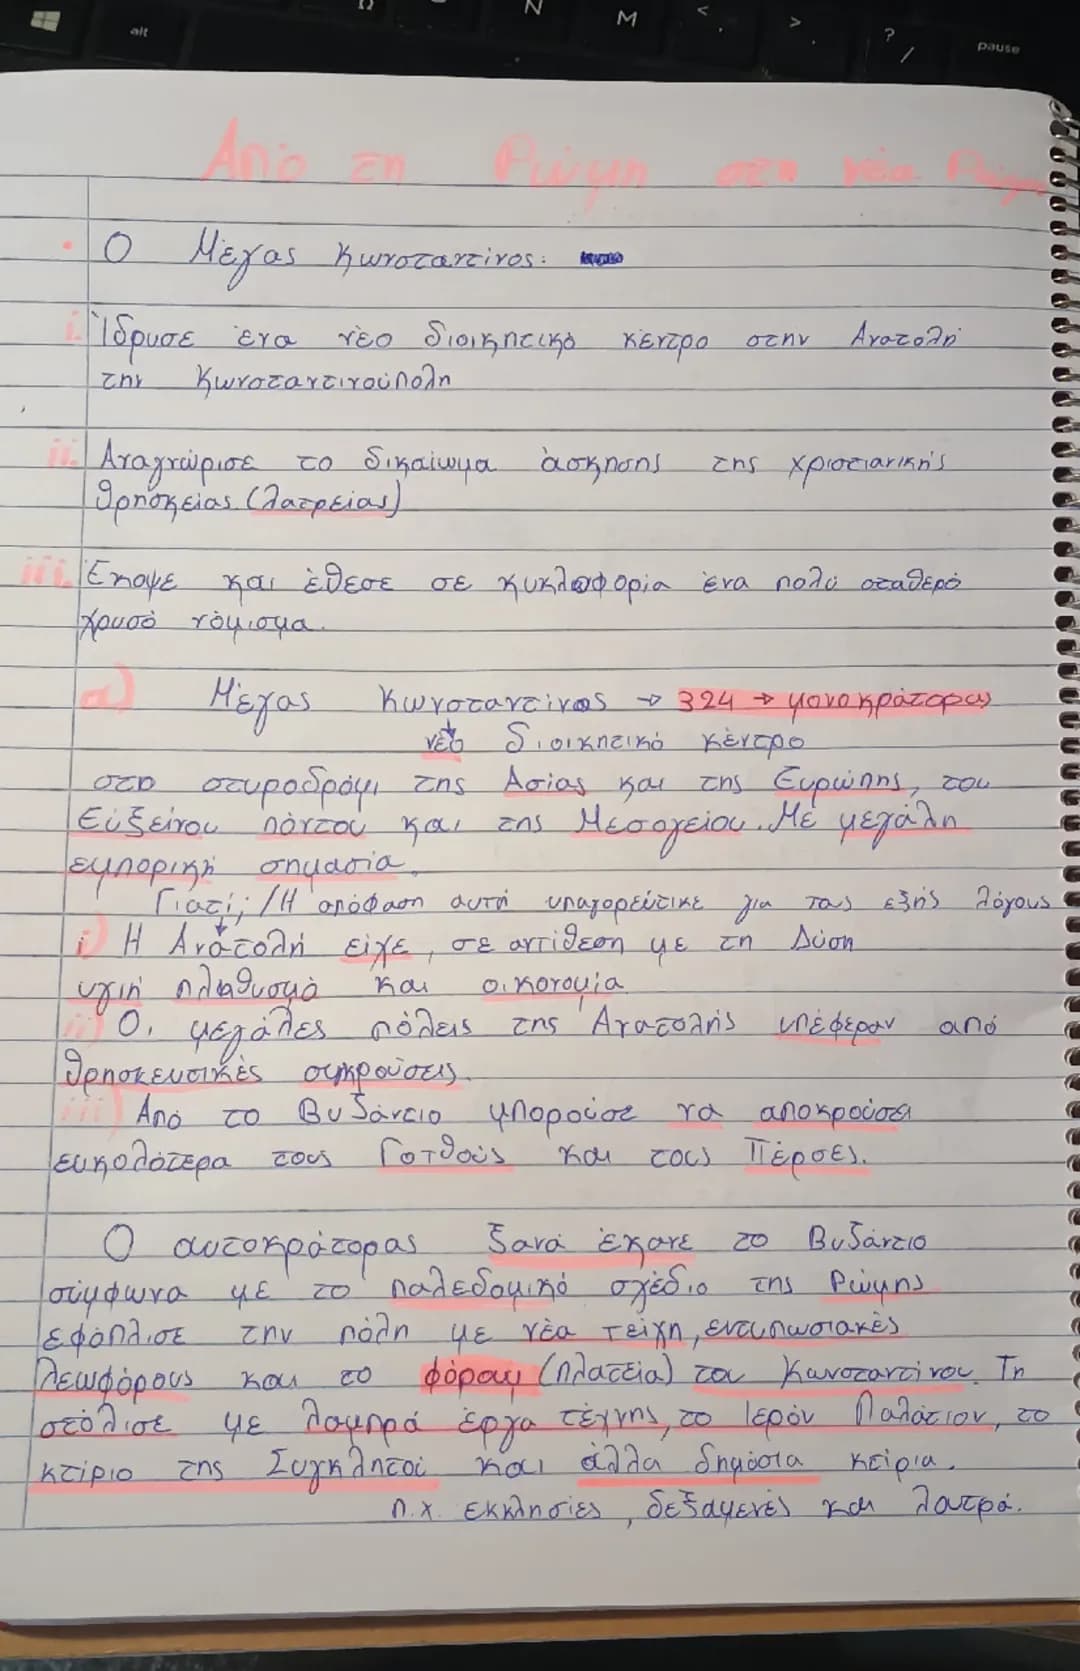 Από τη Ρώμη στη νέα Ρώμη
Ο Μέγας Κωνσταντίνος:
i. Ίδρυσε ένα νέο διοικητικό κέντρο στην Ανατολή
την Κωνσταντινούπολη
ii. Αναγνώρισε το δικαίωμα άσκησης της χριστιανικής
θρησκείας (λατρείας)
iii. Έκοψε και έθεσε σε κυκλοφορία ένα πολύ σταθερό
χρυσό νόμισμα.
α) Μέγας Κωνσταντίνος → 324 → μονοκράτορας
νέο διοικητικό κέντρο
στο σταυροδρόμι της Ασίας και της Ευρώπης, του
Εύξεινου πόντου και της Μεσογείου. Με μεγάλη
εμπορική σημασία.
Γιατί; / Η απόφαση αυτή υπαγορεύτικε για τους εξής λόγους
i) Η Ανατολή είχε, σε αντίθεση με τη Δύση
υγιή πληθυσμό και οικονομία
ii) Οι μεγάλες πόλεις της Ανατολής υπέφεραν από
θρησκευτικές συγκρούσεις.
iii) Από το Βυζάντιο μπορούσε να αποκρούσει
ευκολότερα τους Γότθους και τους Πέρσες.
Ο αυτοκράτορας ξανά έκανε το Βυζάντιο
σύμφωνα με το παλεδομικό σχέδιο της Ρώμης
εφόπλισε την πόλη με νέα τείχη, εντυπωσιακές
λεωφόρους και το φόρουμ (πλατεία) του Κωνσταντίνου. Τη
στόλισε με λαμπρά έργα τέχνης, το Ιερόν Παλάτιον, το
κτίριο της Συγκλητού και άλλα δημόσια κτίρια.
π.χ. εκκλησίες, δεξαμενές και λουτρά.